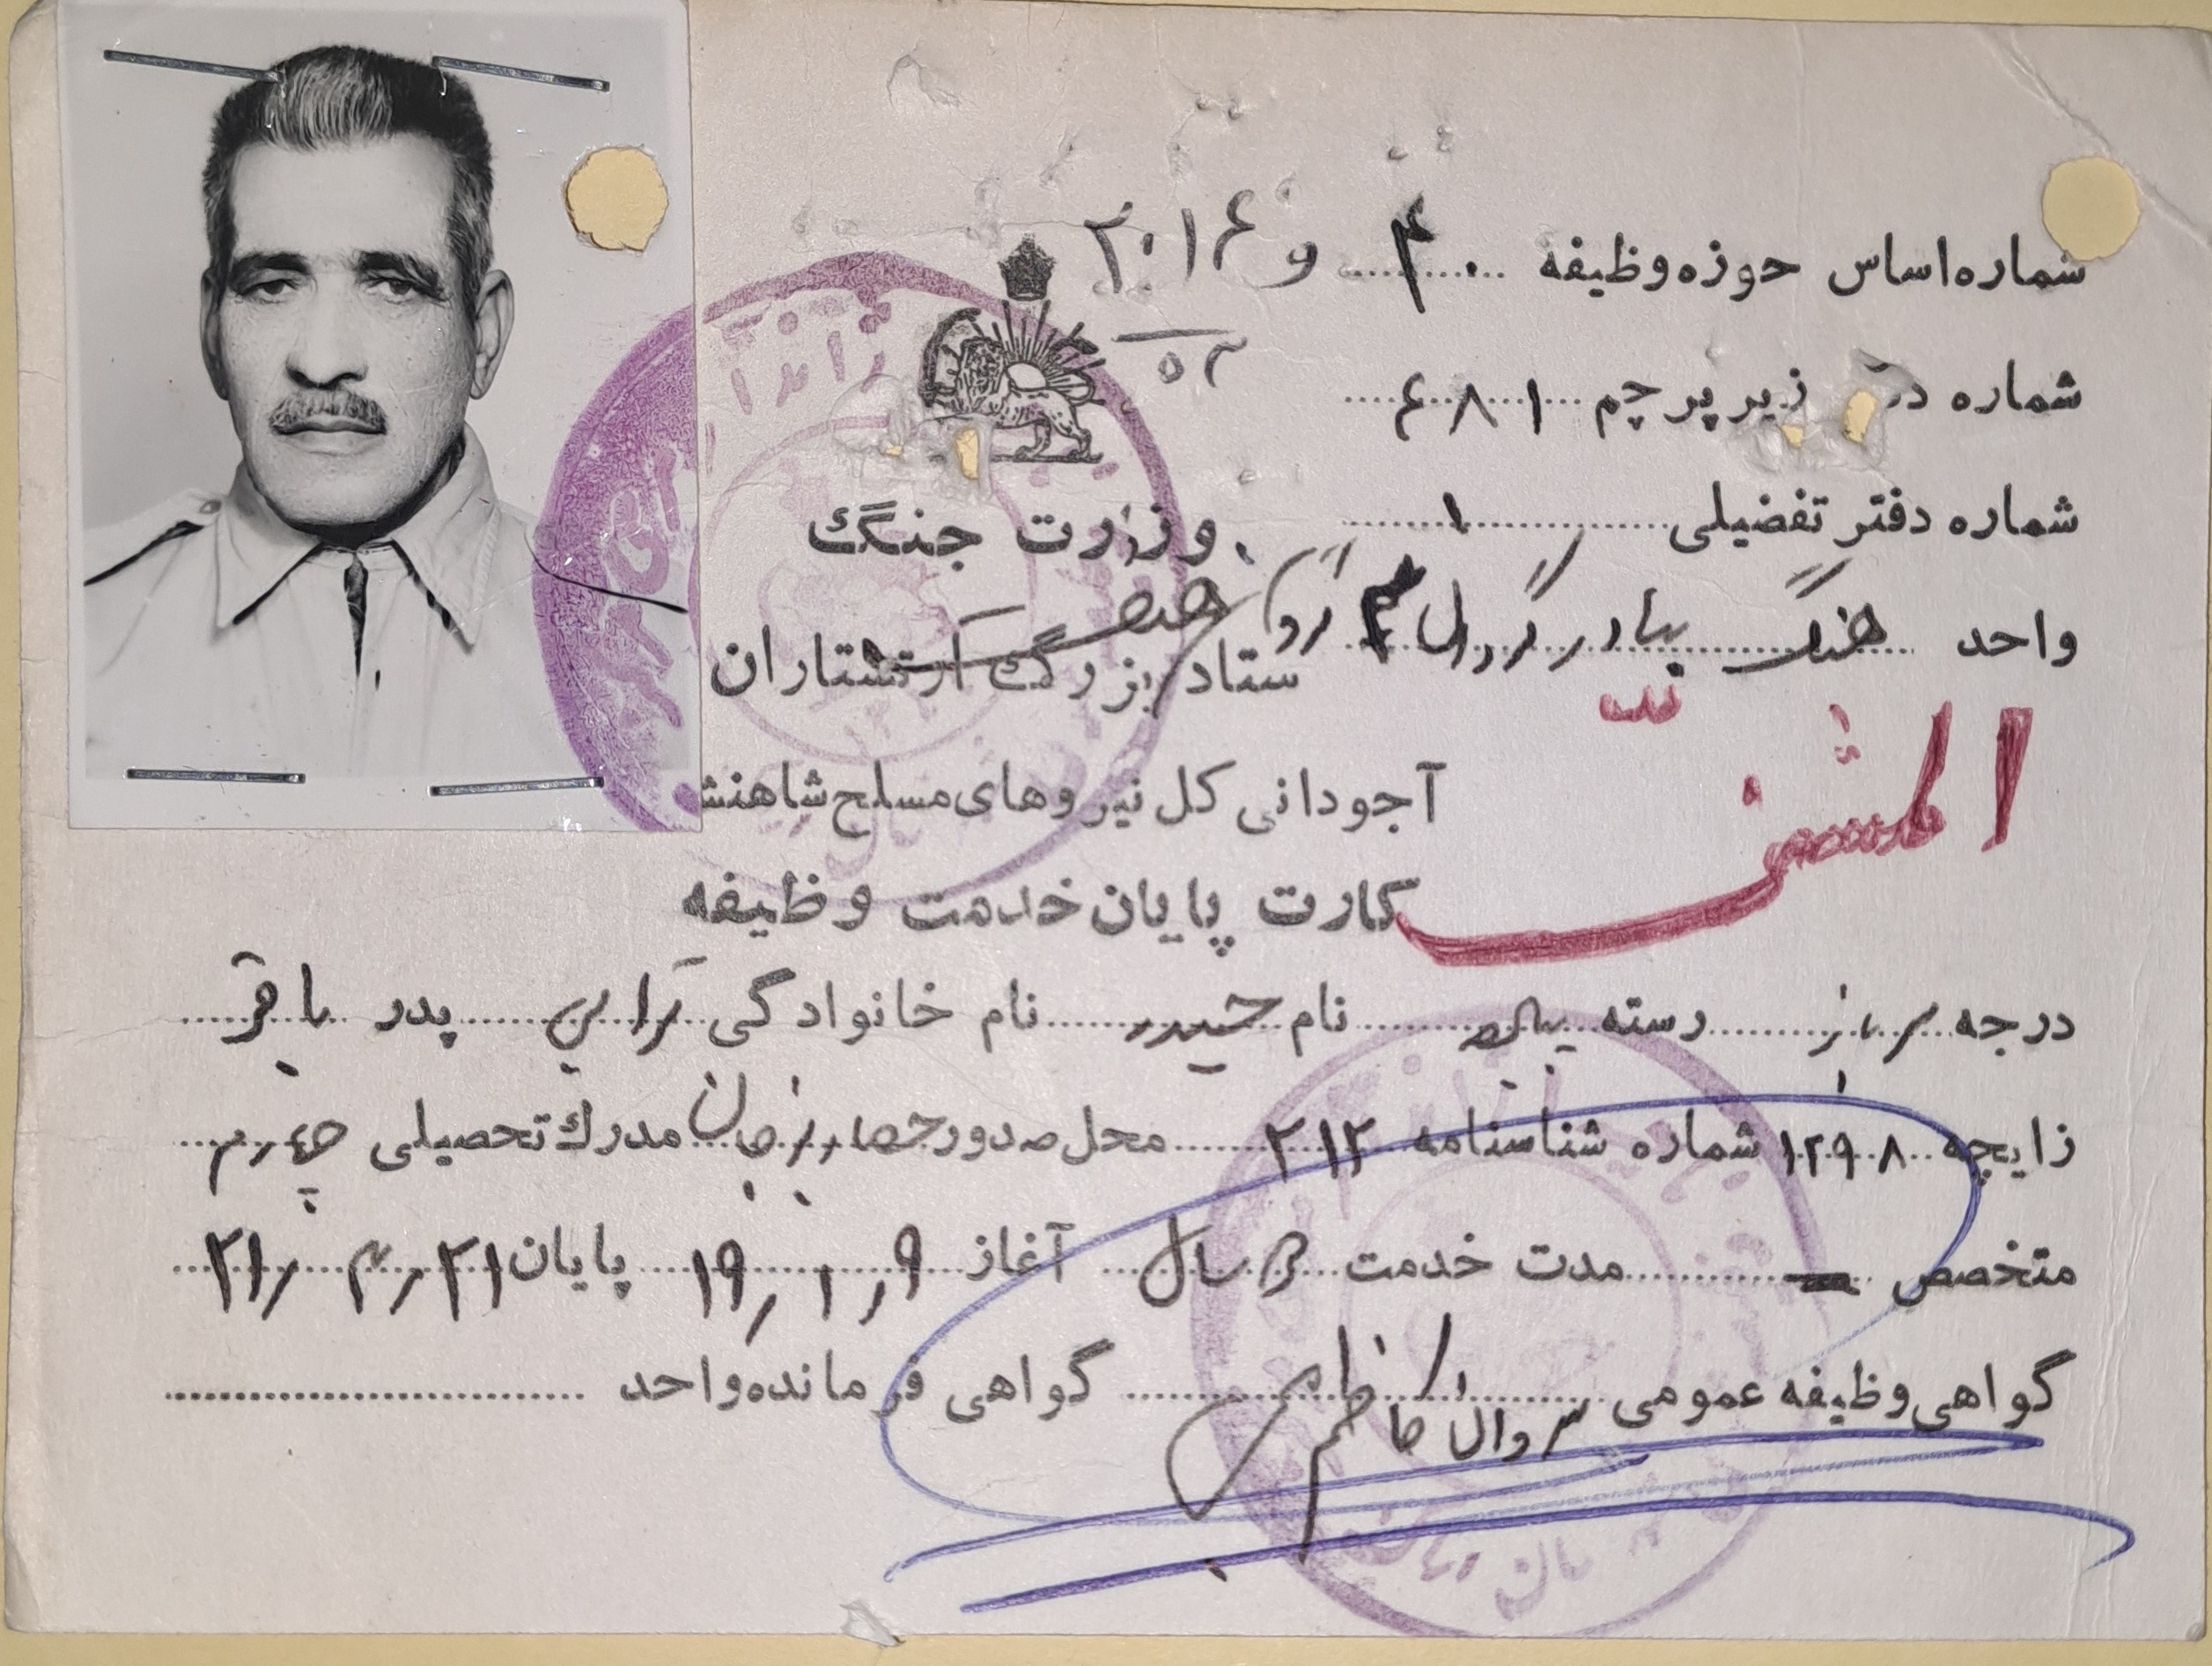 شماره اساس حوزه وظیفه ۴۰ و ۲۰۱۶۴
۵۲
شماره د زیر پرچم ۶۸۱
شماره دفتر تفضیلی ۱
وزارت جنگ
واحد هنگ پیاده
ستاد بزرگ ارتشتاران
المثنی
آجودانی کل نیروهای مسلح شاهنش
کارت پایان خدمت وظیفه
درجه سرباز رسته پیاده نام حیدر نام خانوادگی ترابی پدر باقر
زایچه ۱۲۹۸ شماره شناسنامه ۲۱۲ محل صدور زنجان مدرك تحصیلی چهارم
متخصص — مدت خدمت سال آغاز ۱۹/۱/۹ پایان ۲۱/۳/۲۱
گواهی وظیفه عمومی گواهی فرمانده واحد